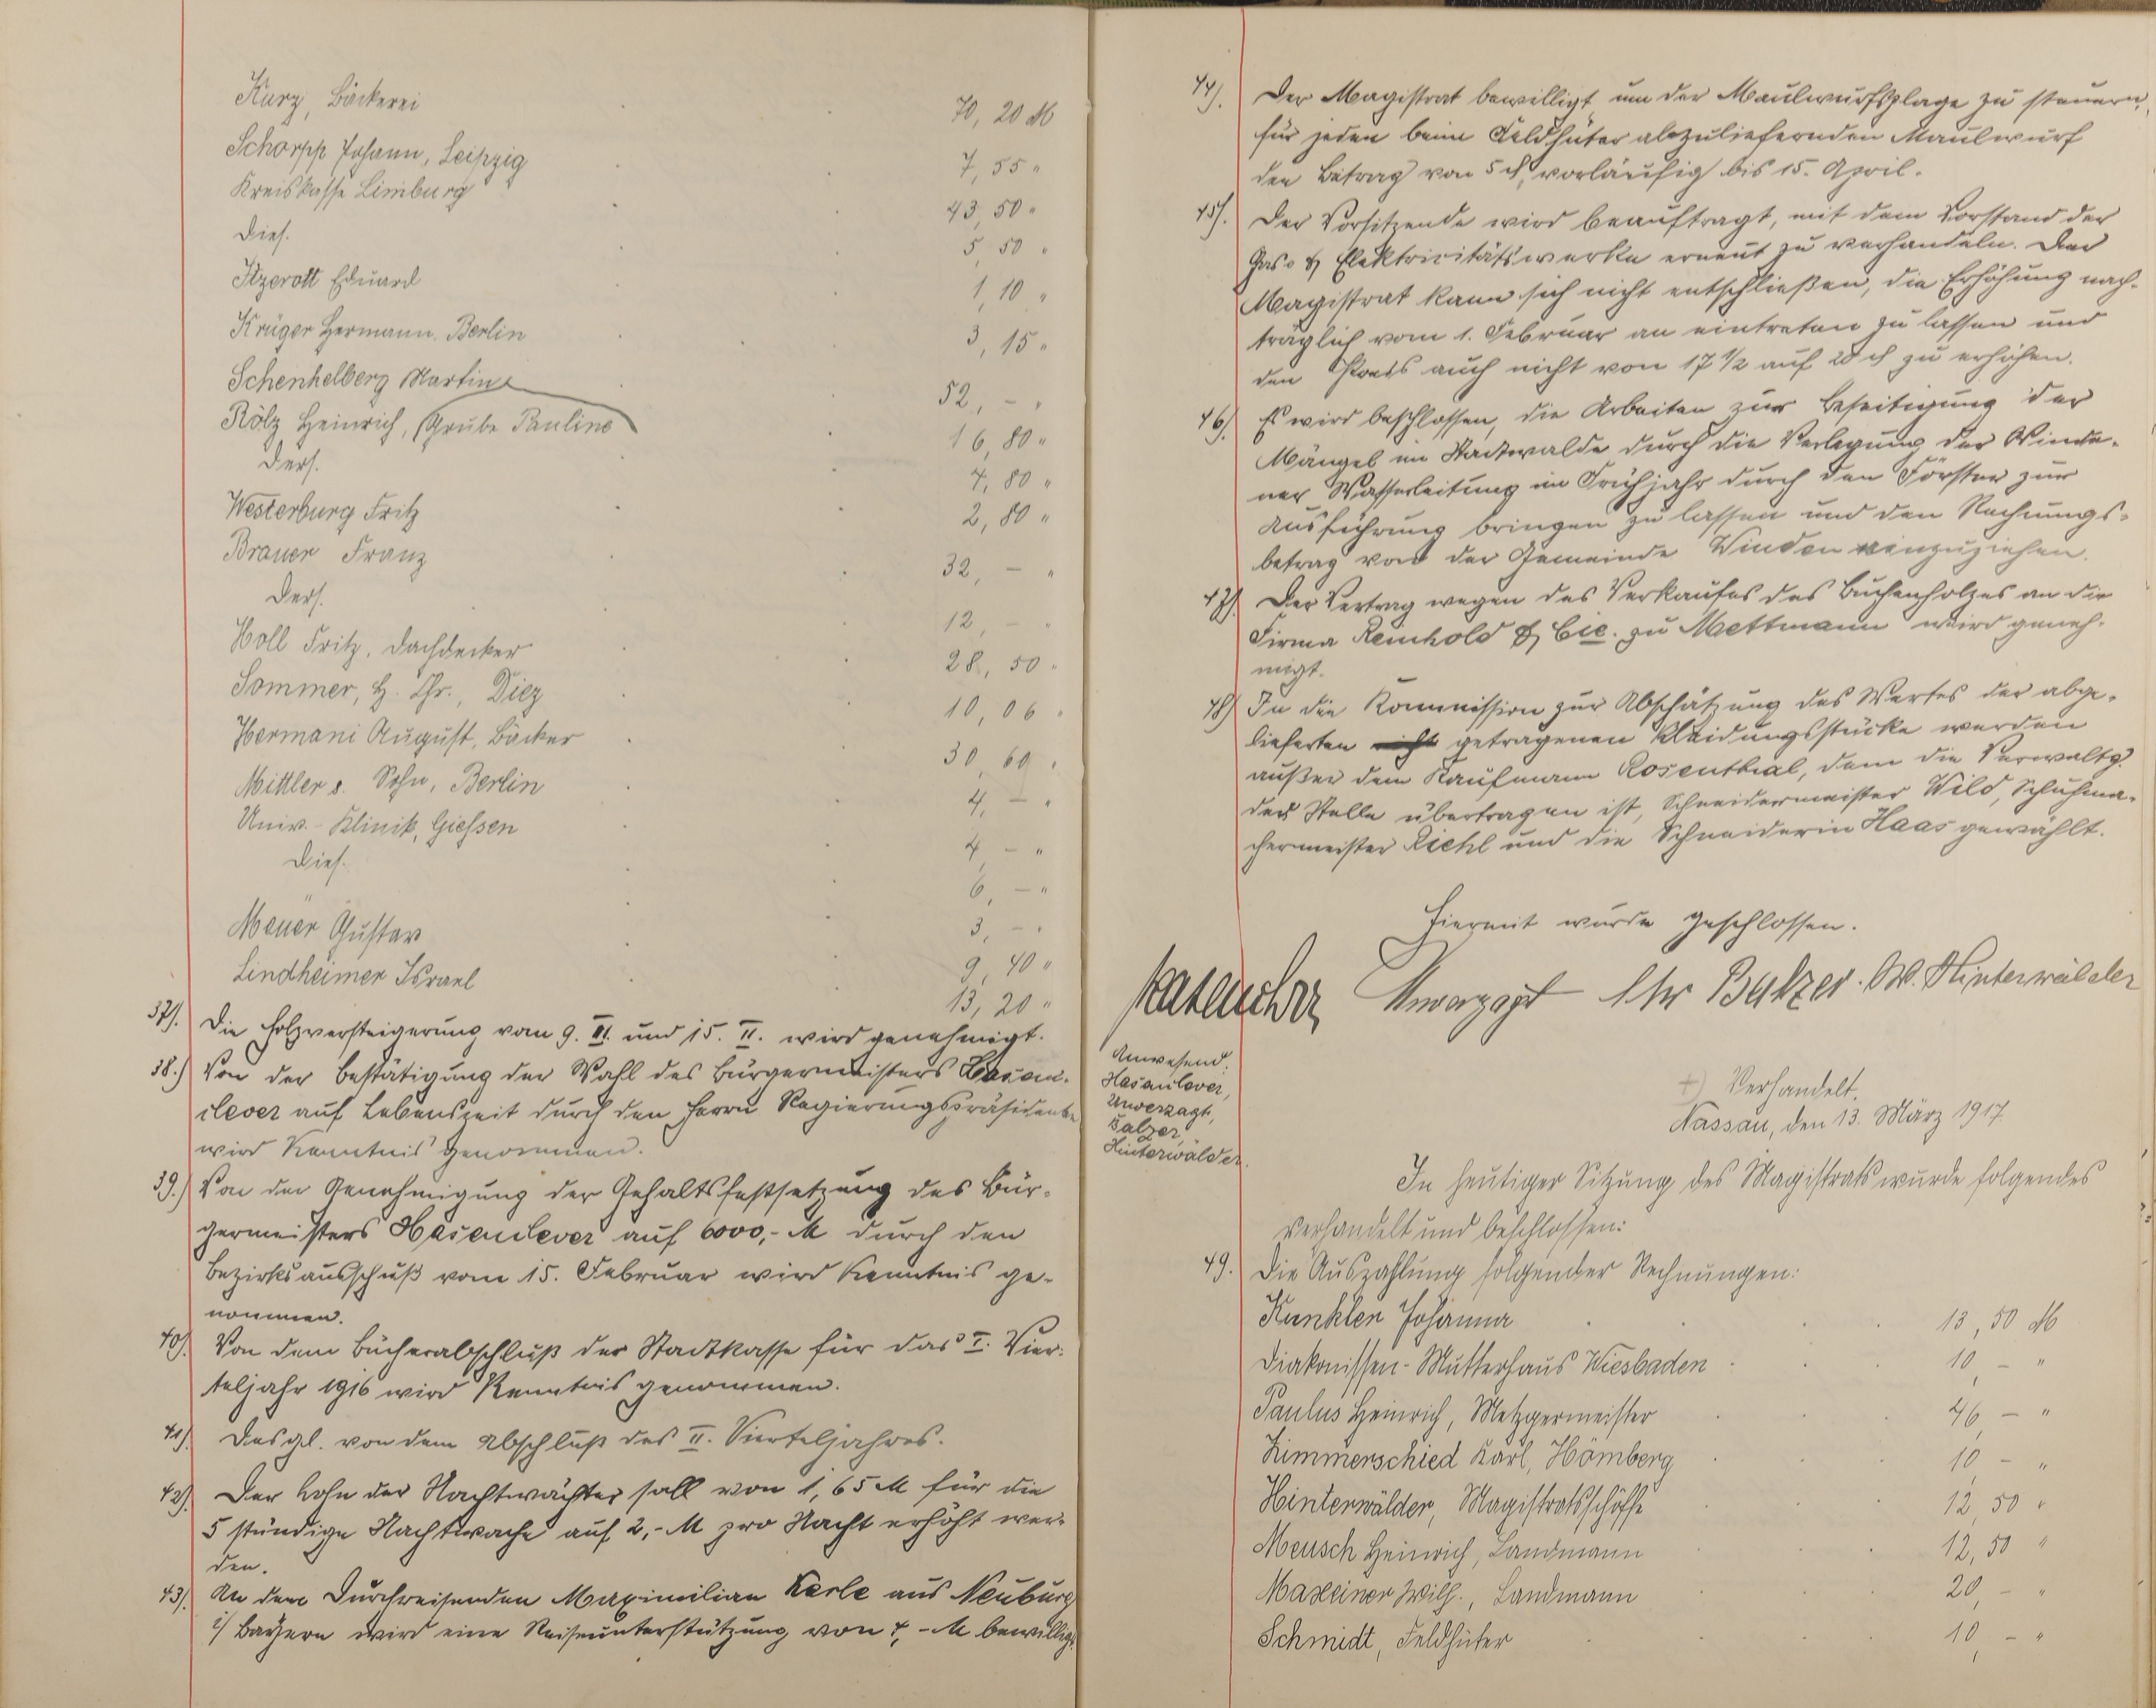 Kurz, Bäckerei 70,20 M
Schorpp Johann, Leipzig 7,55 "
Kreiskasse Limburg 43,50 "
Dies. 5,50 "
Itzerott Eduard 1,10 "
Krüger Hermann. Berlin 3,15 "
Schenkelberg Martin 52,- "
Rölz Heinrich, Grube Pauline 16,80 "
Ders. 4,80 "
Westerburg Fritz 2,80 "
Brauer Franz 32,- "
Ders. 12,- "
Holl Fritz, Dachdecker 28,50 "
Sommer, H. Chr., Diez 10,06 "
Hermani August, Bäcker 30,60 "
Mittler s. Sohn, Berlin 4,- "
Univ.-Klinik, Giessen 4,- "
Dies. 6,- "
Meuer Gustav 3,- "
Lindheimer Israel 9,40 "
13,20 "
37). Die Holzversteigerung vom 9. II. und 15. II. wird genehmigt.
38.) Von der Bestätigung der Wahl des Bürgermeisters Hasen-
clever auf Lebenszeit durch den Herrn Regierungspräsidenten
wird Kenntnis genommen.
39.) Von der Genehmigung der Gehaltsfestsetzung des Bür-
germeisters Hasenclever auf 6000,- M durch den
Bezirksausschuß vom 15. Februar wird Kenntnis ge-
nommen.
40). Von dem Bücherabschluß der Stadtkasse für das I. Vier-
teljahr 1916 wird Kenntnis genommen.
41). Desgl. von dem Abschluß des II. Vierteljahres.
42). Der Lohn der Nachtwächter soll von 1,65 M für die
5 stündige Nachtwache auf 2,- M pro Nacht erhöht wer-
den.
43). An dem Durchreisenden Maximilian Kerle aus Neuburg
i/ Bayern wird eine Reiseunterstützung von 4,- M bewilligt.
44). Der Magistrat bewilligt um der Maulwurfsplage zu steuern,
für jeden beim Feldhüter abzuliefernden Maulwurf
den Betrag von 5 ₰, vorläufig bis 15. April.
45). Der Vorsitzende wird beauftragt, mit dem Vorstand der
Gas- & Elektricitätswerke erneut zu verhandeln. Der
Magistrat kann sich nicht entschließen, die Erhöhung nach-
träglich vom 1. Februar an eintreten zu lassen und
den Preis auch nicht von 17 1/2 auf 20 ₰ zu erhöhen.
46). Es wird beschlossen, die Arbeiten zur Beseitigung der
Mängel im Stadtwalde durch die Verlegung der Winde-
ner Wasserleitung im Frühjahr durch den Förster zur
Ausführung bringen zu lassen und den Rechnungs-
betrag von der Gemeinde Winden einzuziehen.
47). Der Vertrag wegen des Verkaufes des Buchenholzes an die
Firma Reinhold & Cie. zu Mettmann wird geneh-
migt.
48) In die Kommission zur Abschätzung des Wertes der abge-
lieferten nicht getragenen Kleidungsstücke werden
außer dem Kaufmann Rosenthal, dem die Verwaltg.
der Stelle übertragen ist, Schneidermeister Wild, Schuhma-
chermeister Riehl und die Schneiderin Haas gewählt.
Hiermit wurde geschlossen.
Hasenclever Unverzagt Chr Balzer. W. Hinterwälder
Anwesend:
Hasenclever,
Unverzagt,
Balzer,
Hinterwälder.
Verhandelt.
Nassau, den 13. März 1917.
In heutiger Sitzung des Magistrats wurde folgendes
verhandelt und beschlossen:
49. Die Auszahlung folgender Rechnungen:
Kunkler Johanna 13,50 M
Diakonissen-Mutterhaus Wiesbaden 10,- "
Paulus Heinrich, Metzgermeister 46,- "
Zimmerschied Karl, Hömberg 10,- "
Hinterwälder, Magistratsschöffe 12,50 "
Meusch Heinrich, Landmann 12,50 "
Maxeiner Wilh., Landmann 20,- "
Schmidt, Feldhüter 10,- "